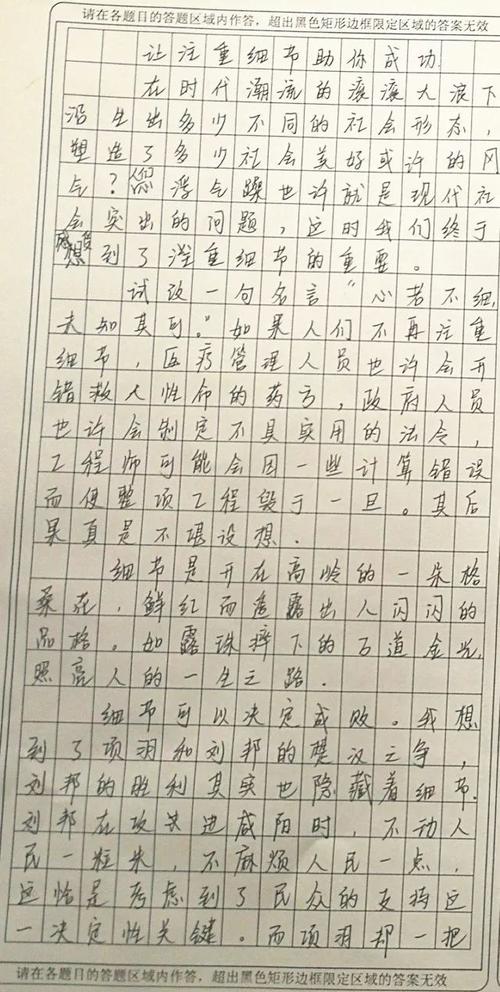 请在各题目的答题区域内作答，超出黑色矩形边框限定区域的答案无效
让注重细节助你成功
在时代潮流的滚滚大浪下
沿生出多少不同的社会形态，
塑造了多少社会美好或许的风
气？您浮气躁也许就是现代社
会突出的问题，这时我们终于
想到了注重细节的重要。
试改一句名言“心若不细，
未知其可。”如果人们不再注重
细节，医疗管理人员也许会开
错救人性命的药方，政府人员
也许会制定不具实用的法令，
工程师可能会因一些计算错误
而使整项工程毁于一旦。其后
果真是不堪设想．
细节是开在高岭的一朵格
桑花，鲜红而透露出人闪闪的
品格。如露珠摔下的万道金光，
照亮人的一生之路．
细节可以决定成败。我想
到了项羽和刘邦的楚汉之争，
刘邦的胜利其实也隐藏着细节．
刘邦在攻关进咸阳时，不动人
民一粒米，不麻烦人民一点，
这恰是考虑到了民众的支持这
一决定性关键。而项羽却一把
请在各题目的答题区域内作答，超出黑色矩形边框限定区域的答案无效